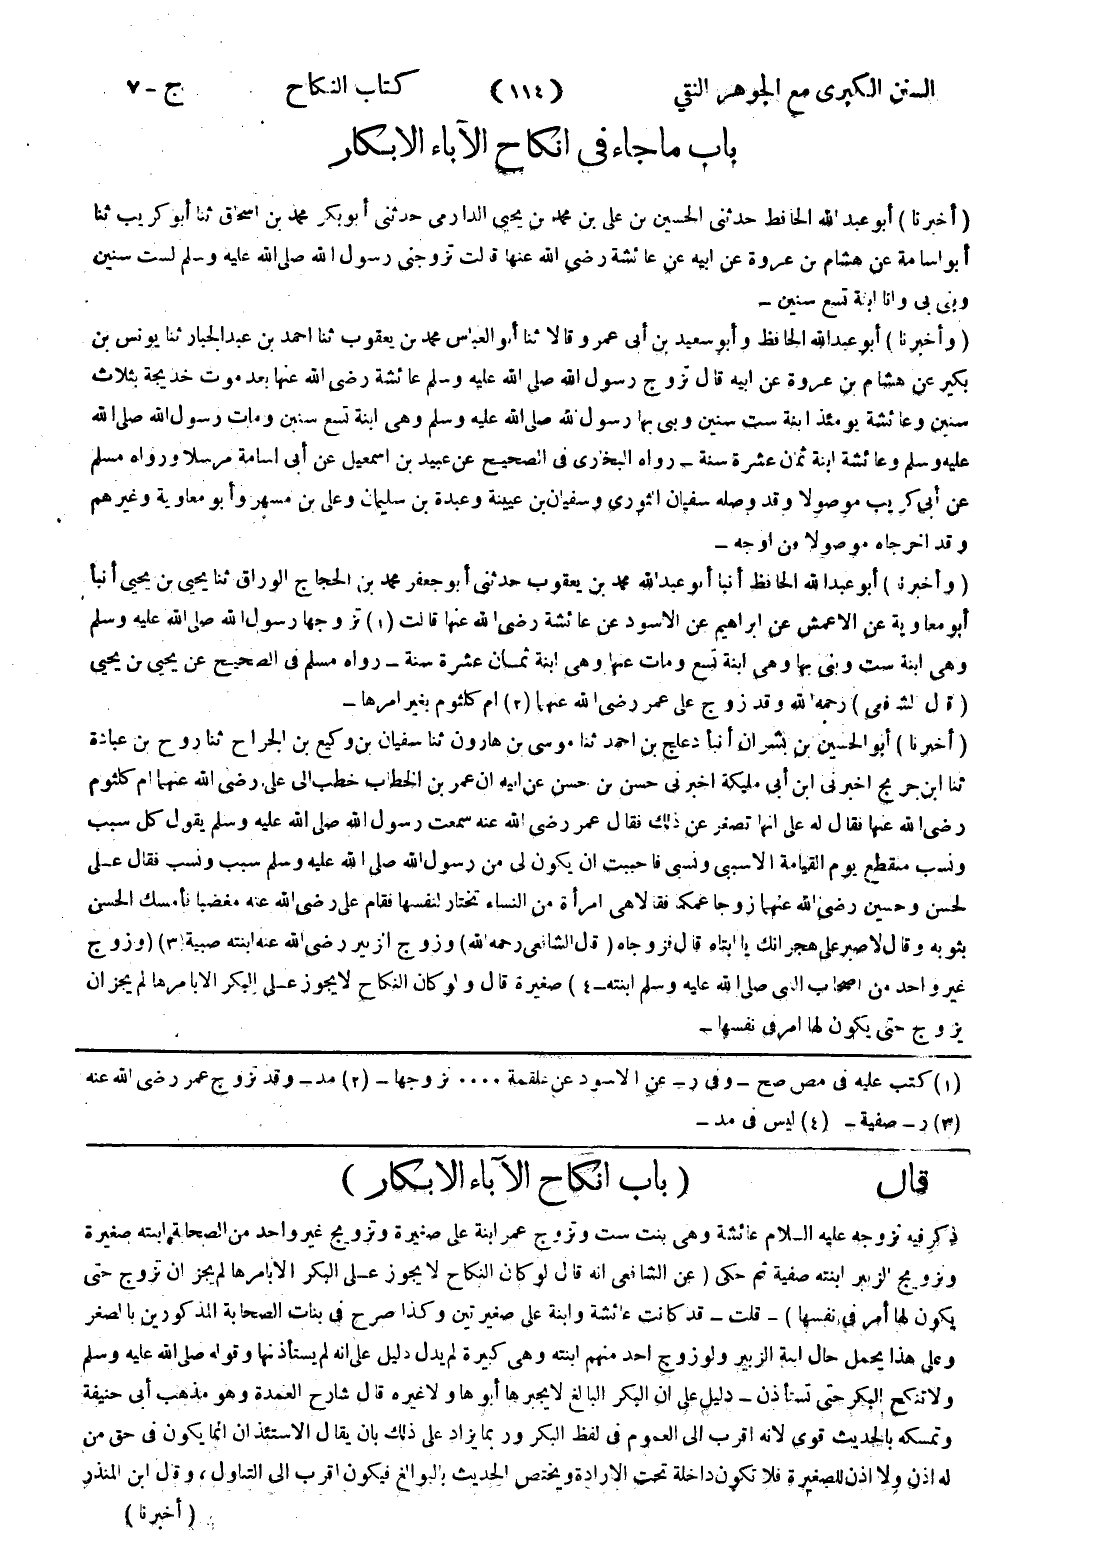 السنن الكبرى مع الجوهر النقي (١١٤) كتاب النكاح ج - ٧
باب ما جاء فى انكاح الآباء الابكار
( أخبرنا ) أبو عبد الله الحافظ حدثنى الحسين بن على بن محمد بن يحيى الدارمى حدثنى أبو بكر محمد بن اسحاق ثنا أبو كريب ثنا
أبو اسامة عن هشام بن عروة عن ابيه عن عائشة رضي الله عنها قالت تزوجنى رسول الله صلى الله عليه وسلم لست سنين
وبنى بى وانا ابنة تسع سنين –
( وأخبرنا ) أبو عبدالله الحافظ وأبو سعيد بن أبى عمرو قالا ثنا أبو العباس محمد بن يعقوب ثنا احمد بن عبدالجبار ثنا يونس بن
بكير عن هشام بن عروة عن ابيه قال تزوج رسول الله صلى الله عليه وسلم عائشة رضى الله عنها بعد موت خديجة بثلاث
سنين وعائشة يومئذ ابنة ست سنين وبنى بها رسول الله صلى الله عليه وسلم وهى ابنة تسع سنين ومات رسول الله صلى الله
عليه وسلم وعائشة ابنة ثمان عشرة سنة – رواه البخارى فى الصحيح عن عبيد بن اسمعيل عن أبى اسامة مرسلا ورواه مسلم
عن أبى كريب موصولا وقد وصله سفيان الثورى وسفيان بن عيينة وعبدة بن سليمان وعلى بن مسهر وأبو معاوية وغيرهم
وقد اخرجاه موصولا من اوجه –
( وأخبرنا ) أبو عبدالله الحافظ أنبأ أبو عبدالله محمد بن يعقوب حدثنى أبو جعفر محمد بن الحجاج الوراق ثنا يحيى بن يحيى أنبأ
أبو معاوية عن الاعمش عن ابراهيم عن الاسود عن عائشة رضى الله عنها قالت (١) تزوجها رسول الله صلى الله عليه وسلم
وهى ابنة ست وبنى بها وهى ابنة تسع ومات عنها وهى ابنة ثمان عشرة سنة – رواه مسلم فى الصحيح عن يحيى بن يحيى
( قال الشافعى ) رحمه الله وقد زوج على عمر رضى الله عنهما (٢) ام كلثوم بغير امرها –
( أخبرنا ) أبو الحسين بن بشران أنبأ دعلج بن احمد ثنا موسى بن هارون ثنا سفيان بن وكيع بن الجراح ثنا روح بن عبادة
ثنا ابن جريج اخبرنى ابن أبى مليكة اخبرنى حسن بن حسن عن ابيه ان عمر بن الخطاب خطب الى على رضى الله عنهما ام كلثوم
رضى الله عنها فقال له على انها تصغر عن ذلك فقال عمر رضى الله عنه سمعت رسول الله صلى الله عليه وسلم يقول كل سبب
ونسب منقطع يوم القيامة الا سببى ونسبى فاحببت ان يكون لى من رسول الله صلى الله عليه وسلم سبب ونسب فقال على
لحسن وحسين رضى الله عنهما زوجا عمكما فقالا هى امرأة من النساء تختار لنفسها فقام على رضى الله عنه مغضبا فأمسك الحسن
بثوبه وقال لا صبر على هجرانك يا ابتاه قال فزوجاه ( قال الشافعى رحمه الله ) وزوج الزبير رضى الله عنه ابنته صبية (٣) ( وزوج
غير واحد من اصحاب النبى صلى الله عليه وسلم ابنته – ٤ ) صغيرة قال ولو كان النكاح لا يجوز على البكر الا بامرها لم يجز ان
يزوج حتى يكون لها امر فى نفسها –
(١) كتب عليه فى مص صح – وفى ر – عن الاسود عن علقمة .... تزوجها – (٢) مد – وقد تزوج عمر رضى الله عنه
(٣) ر – صفية – (٤) ليس فى مد –
قال ( باب انكاح الآباء الابكار )
ذكر فيه تزوجه عليه السلام عائشة وهى بنت ست وتزوج عمر ابنة على صغيرة وتزويج غير واحد من الصحابة ابنته صغيرة
وتزويج الزبير ابنته صفية ثم حكى ( عن الشافعى انه قال لو كان النكاح لا يجوز على البكر الا بامرها لم يجز ان تزوج حتى
يكون لها أمر فى نفسها ) – قلت – قد كانت عائشة وابنة على صغيرتين وكذا صرح فى بنات الصحابة المذكورين بالصغر
وعلى هذا يحمل حال ابنة الزبير ولو زوج احد منهم ابنته وهى كبيرة لم يدل دليل على انه لم يستأذنها وقوله صلى الله عليه وسلم
ولا تنكح البكر حتى تستأذن – دليل على ان البكر البالغ لا يجبرها أبوها ولا غيره قال شارح العمدة وهو مذهب أبى حنيفة
وتمسكه بالحديث قوى لانه اقرب الى العموم فى لفظ البكر وربما يزاد على ذلك بان يقال الاستئذان انما يكون فى حق من
له اذن ولا اذن للصغيرة فلا تكون داخلة تحت الارادة ويختص الحديث بالبوالغ فيكون اقرب الى التناول ، وقال ابن المنذر
( أخبرنا )